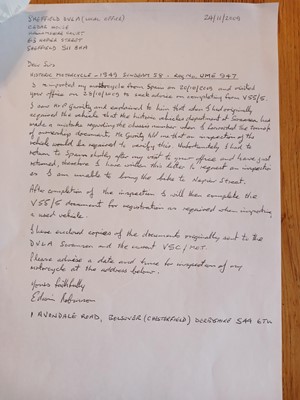 SHEFFIELD DVLA (LOCAL OFFICE) 24/11/2009
CEDAR HOUSE
COURT
63 NAPIER STREET
SHEFFIELD S11 8HA
Dear Sirs
HISTORIC MOTORCYCLE - 1949 SUNBEAM S8 - REG NO UMG 947
I imported my motorcycle from Spain on 20/10/2009 and visited
your office on 23/10/2009 to seek advice on completing form V55/5.
I saw Mr and explained to him that when I had originally
acquired the vehicle that the historic vehicles department at Swansea had
made a mistake regarding the chassis number when I forwarded the transfer
of ownership documents. Mr told me that an inspection of the
vehicle would be required to verify this. Unfortunately I had to
return to Spain shortly after my visit to your office and have just
returned, therefore I have written this letter to request an inspection
as I am unable to bring the bike to Napier Street.
After completion of the inspection I will then complete the
V55/5 document for registration as required when importing
a used vehicle.
I have enclosed copies of the documents originally sent to the
DVLA Swansea and the current V5C/MOT.
Please advise a date and time for inspection of my
motorcycle at the address below.
Yours faithfully
Edwin
1 AVONDALE ROAD, BOLSOVER (CHESTERFIELD) DERBYSHIRE S44 6TU